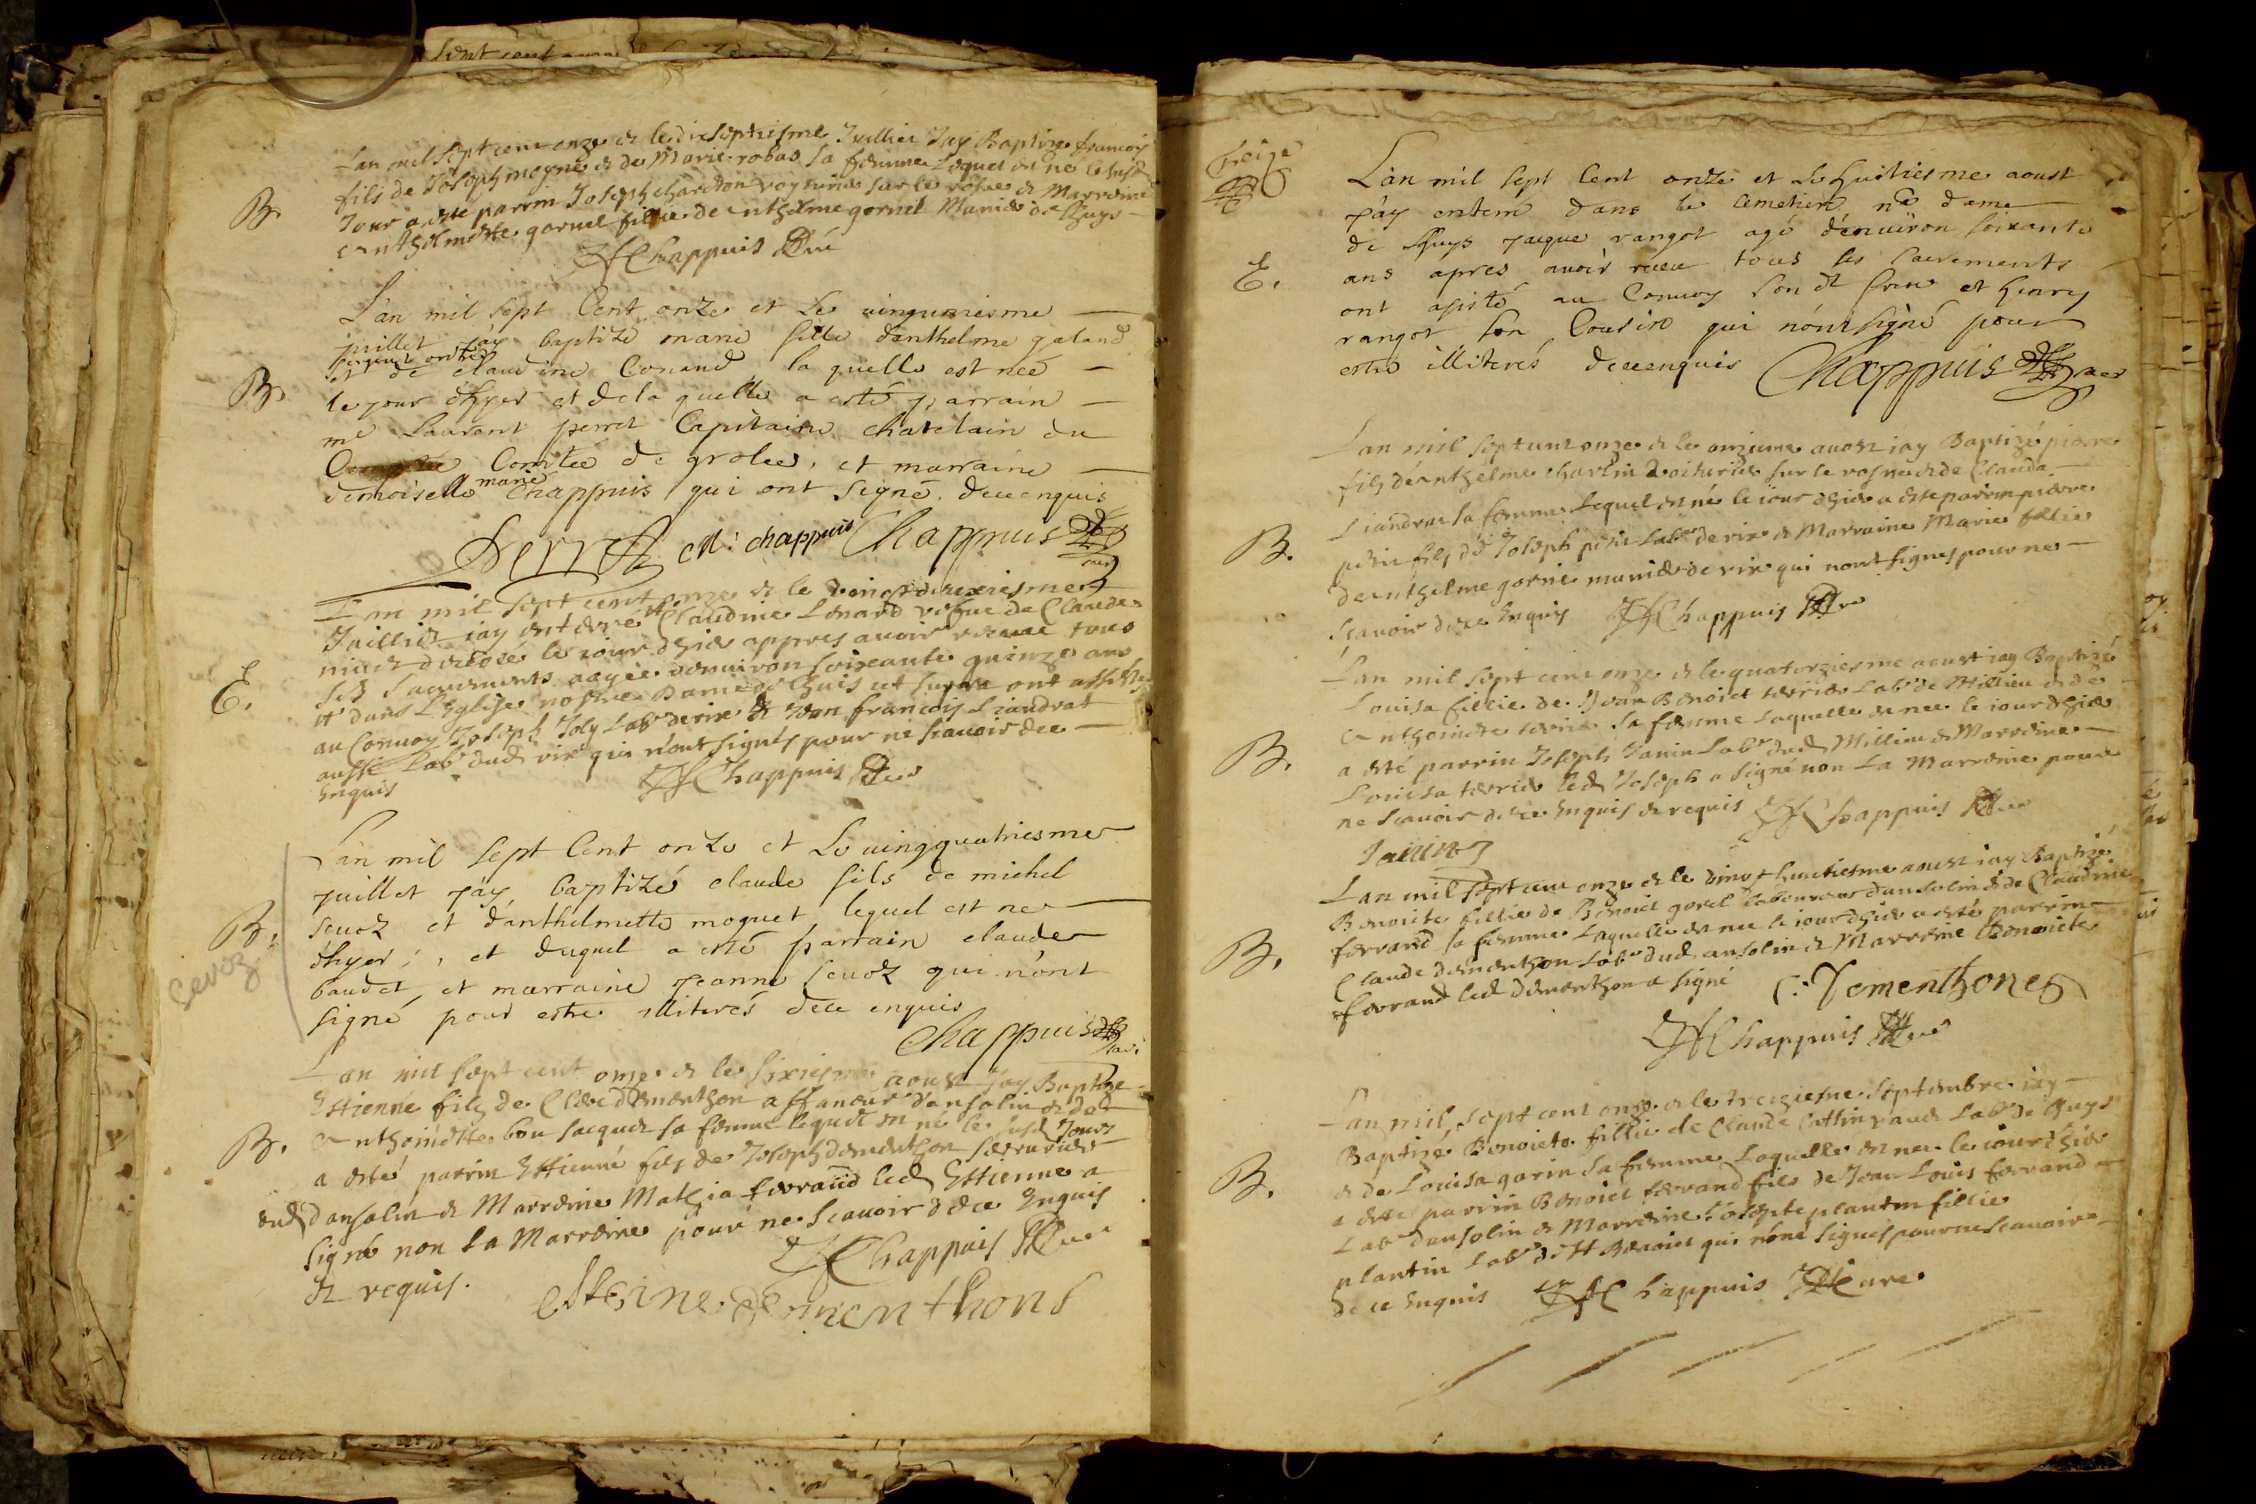 Lan mil sept cent onze & le dixseptiesme Juillier Jay Baptize francois
fils de Joseph moyne & de Marie robas sa femme lequel est né le susd
B. Jour a esté parrin Joseph chardon voyturier sur le rosne & Marreine
Anthelmette gornel fillie de Anthelme gornel Munier de Lhuys
Chappuis Curé
L'an mil sept Cent onze et Le vinguniesme
juillet j'ay baptizé marie fille d'anthelme galand
B. et de claudine Conand la quelle est née
le jour d'hyer et de la quelle a esté parrain
me Laurent perret Capitaine chatelain du
Comtée de grolee, et marraine
demoiselle marie Chappuis qui ont signé. dece enquis
Perret M: chappuis Chappuis
Lan mil sept cent onze & le vingtdeuxiesme
Juillier iay enterré Claudine Conard vefue de Claude
decedé le iour d'hier appres avoir receue tous
E. ses sacrements aagée denuiron soixeante quinze ans
et dans l'Eglise nostre Dame de Lhuis et sur ce ont assisté
au Convoy Joseph Joly Labr de rix & Jean francois Liandrat
aussi Labr dud rix qui n'ont signés pour ne scavoir dece
Enquis Chappuis Curé
L'an mil sept Cent onze et Le vingquatriesme
juillet j'ay baptizé claude fils de michel
B. sevoz et d'anthelmette moquet lequel est né
Sevoz
d'hyer, et duquel a esté parrain claude
baudet, et marraine jeanne sevoz qui n'ont
signé pour estre illiterés dece enquis
Chappuis
Lan mil sept cent onze & le sixiesme aoust Jay Baptize
Estienne fils de Claude dementhon affaneur d'ansolin & de
B. Anthoinette bon Jacquet sa femme lequel est né le susd Jour
a esté parrin Estienne fils de Joseph dementhon serrurier
dud d'ansolin & Marreine Mathia ferrand led Estienne a
signé non la Marreine pour ne scavoir de ce Enquis
& requis. Chappuis Curé
esteine dementhons
treize
L'an mil sept Cent onze et Le huitiesme aoust
j'ay enterré dans le cimetiere ne dame
de Lhuys jacque rangot agé d'enuiron soixante
E. ans apres auoir receu tous les sacrements
ont assisté au Convoy son dt frere et henry
rangot son Cousin qui n'ont signé pour
estre illiterés dece enquis Chappuis
Lan mil sept cent onze & le onzieme aoust iay Baptizé pierre
fils de Anthelme charlin voiturier sur le rosne & de Clauda
Liandraz sa femme lequel est né le iour d'hier a esté parrin pierre
B. petit fils de Joseph petit Labr de rix & Marraine Marie fillie
de Anthelme gornie munier de rix qui n'ont signés pour ne
scavoir de ce Enquis Chappuis Curé
Lan mil sept cent onze & le quatorziesme aoust iay Baptizé
Louisa fillie de Jean Benoict terrier Labr de Millieu & de
Anthoinette sa femme laquelle est nee le iour d'hier
B. a esté parrin Joseph Janin Labr dud Millieu & Marreine
Louisa terrier led Joseph a signé non La Marreine pour
ne scavoir de ce Enquis & requis Chappuis Curé
Janin
Lan mil sept cent onze & le vingt huictiesme aoust iay Baptizé
Benoite fillie de Benoict gorel laboureur dansolin & de Claudine
B. ferrand sa femme laquelle est nee le iour d'hier a esté parrin
Claude dementhon Labr dud ansolin & Marreine Benoicte
ferrand led dementhon a signé C: Dementhones
Chappuis Curé
Lan mil sept cent onze & le treiziesme septembre iay
Baptizé Benoiete fillie de Claude Cattin Labr de Lhuys
B. & de Louisa garin sa femme laquelle est nee le iour d'hier
a esté parrin Benoict ferrand fils de Jean Louis ferrand
Labr dansolin & Marreine Josepte plantin fillie
plantin Labr de St Benoict qui n'ont signés pour ne scavoir
de ce Enquis Chappuis Cure